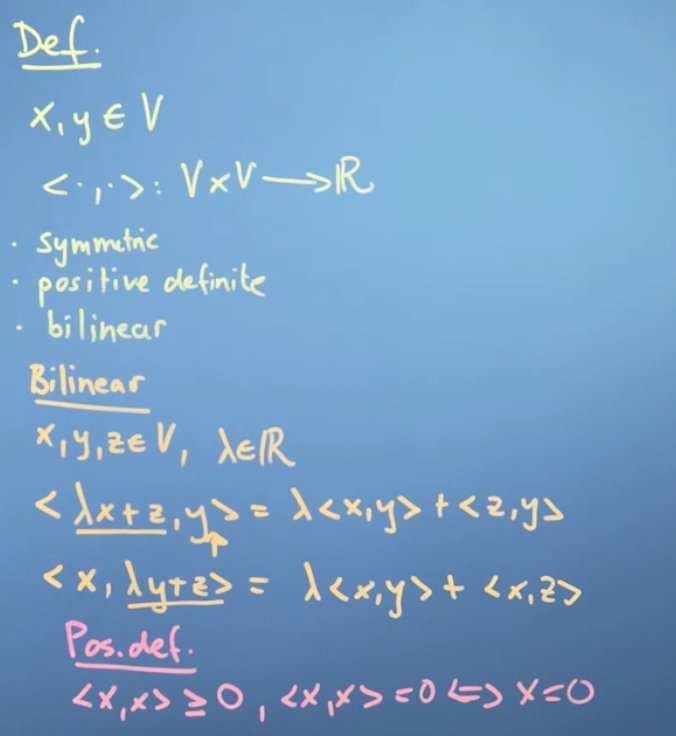 Def.
x, y ∈ V
<·,·>: V×V ⟶ ℝ
· symmetric
· positive definite
· bilinear
Bilinear
x, y, z ∈ V, λ∈ℝ
<λx+z, y> = λ<x,y> + <z,y>
<x, λy+z> = λ<x,y> + <x,z>
Pos. def.
<x,x> ≥ 0, <x,x> = 0 ⟺ x=0